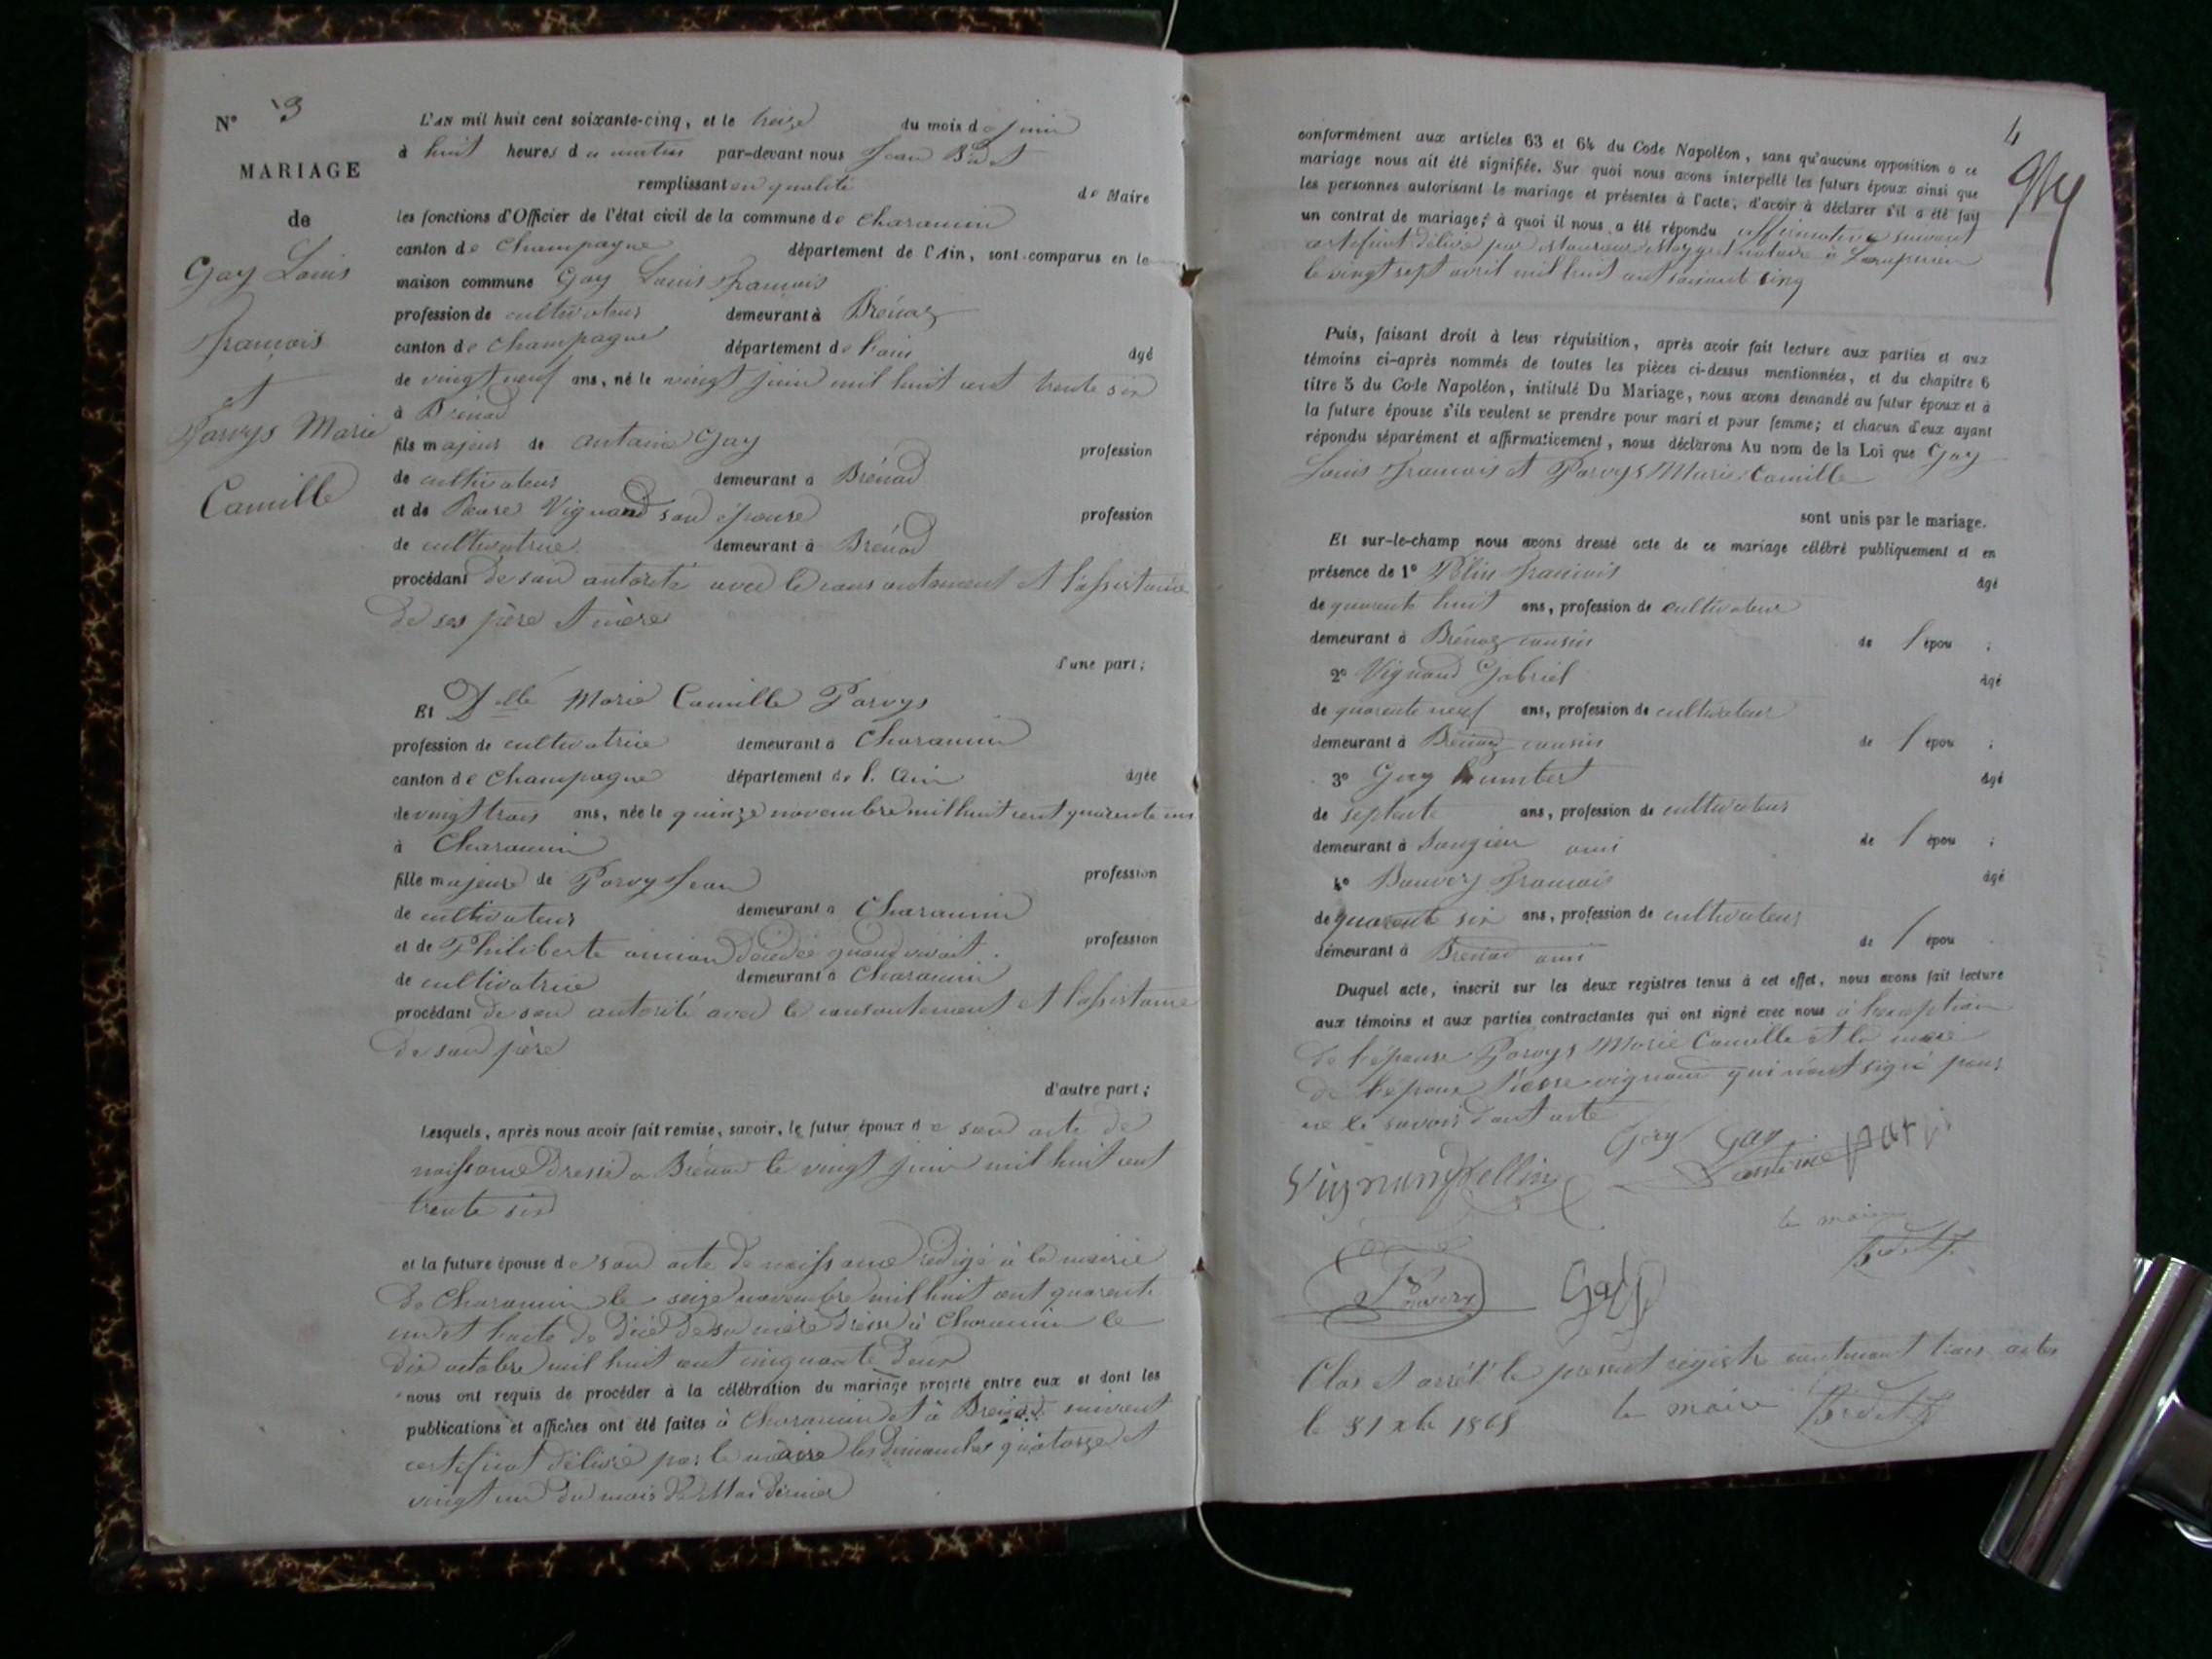 N° 3
MARIAGE
de
Gay Louis
François
et
Parvys Marie
Camille
L'AN mil huit cent soixante-cinq, et le treize du mois de juin
à huit heures du matin par-devant nous Jean Bidet
remplissant en qualité de Maire
les fonctions d'Officier de l'état civil de la commune de Charancin
canton de Champagne département de l'Ain, sont comparus en la
maison commune Gay Louis François
profession de cultivateur demeurant à Brénaz
canton de Champagne département de l'ain âgé
de vingt neuf ans, né le vingt juin mil huit cent trente six
à Brénad
fils majeur de antoine Gay profession
de cultivateur demeurant à Brénad
et de Vignand son épouse profession
de cultivatrice demeurant à Brénad
procédant de son autorité avec le consentement et l'assistance
de ses père et mère
d'une part;
Et Delle Marie Camille Parvys
profession de cultivatrice demeurant à Charancin
canton de Champagne département de l'Ain âgée
de vingt trois ans, née le quinze novembre mil huit cent quarante un
à Charancin
fille majeure de Parvy Jean profession
de cultivateur demeurant à Charancin
et de Philiberte ancian décédée quand vivait profession
de cultivatrice demeurant à Charancin
procédant de son autorité avec le consentement et l'assistance
de son père
d'autre part;
Lesquels, après nous avoir fait remise, savoir, le futur époux de son acte de
naissance dressé a Brénad le vingt juin mil huit cent
trente six
et la future épouse de son acte de naissance rédigé à la mairie
de Charancin le seize novembre mil huit cent quarante
un et l'acte de décé de sa mère dressé à Charancin le
dix octobre mil huit cent cinquante deux
nous ont requis de procéder à la célébration du mariage projeté entre eux et dont les
publications et affiches ont été faites à Charancin et à Brénad suivant
certificat délivré par le maire les dimanches quatorze et
vingt un du mois de Mai dernier
4
conformément aux articles 63 et 64 du Code Napoléon, sans qu'aucune opposition à ce
mariage nous ait été signifiée. Sur quoi nous avons interpellé les futurs époux ainsi que
les personnes autorisant le mariage et présentes à l'acte, d'avoir à déclarer s'il a été fait
un contrat de mariage; à quoi il nous a été répondu affirmative suivant
certificat délivré par Monsieur notaire à
le vingt sept avril mil huit cent soixante cinq
Puis, faisant droit à leur réquisition, après avoir fait lecture aux parties et aux
témoins ci-après nommés de toutes les pièces ci-dessus mentionnées, et du chapitre 6
titre 5 du Code Napoléon, intitulé Du Mariage, nous avons demandé au futur époux et à
la future épouse s'ils veulent se prendre pour mari et pour femme; et chacun d'eux ayant
répondu séparément et affirmativement, nous déclarons Au nom de la Loi que Gay
Louis François et Parvys Marie Camille
sont unis par le mariage.
Et sur-le-champ nous avons dressé acte de ce mariage célébré publiquement et en
présence de 1° Pélin François âgé
de quarante huit ans, profession de cultivateur
demeurant à Brénaz cousin de l'épou ;
2° Vignand Gabriel âgé
de quarente neuf ans, profession de cultivateur
demeurant à Brénaz cousin de l'épou ;
3° Gay humbert âgé
de septente ans, profession de cultivateur
demeurant à Songieu ami de l'épou ;
4° Bouvery François âgé
de quarante six ans, profession de cultivateur
demeurant à Brénad ami de l'épou
Duquel acte, inscrit sur les deux registres tenus à cet effet, nous avons fait lecture
aux témoins et aux parties contractantes qui ont signé avec nous à l'exception
de l'épouse Parvys Marie Camille et la mère
de l'époux vignand qui n'ont signé pour
ne le savoir dont acte
Gay Gay
antoine
Vignand Pellin
le maire
Bidet
Bouvery Gay
Clos et arrété le présent registre contenant trois actes
le 31 xbr 1865 le maire Bidet